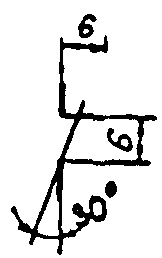 6
6
30°